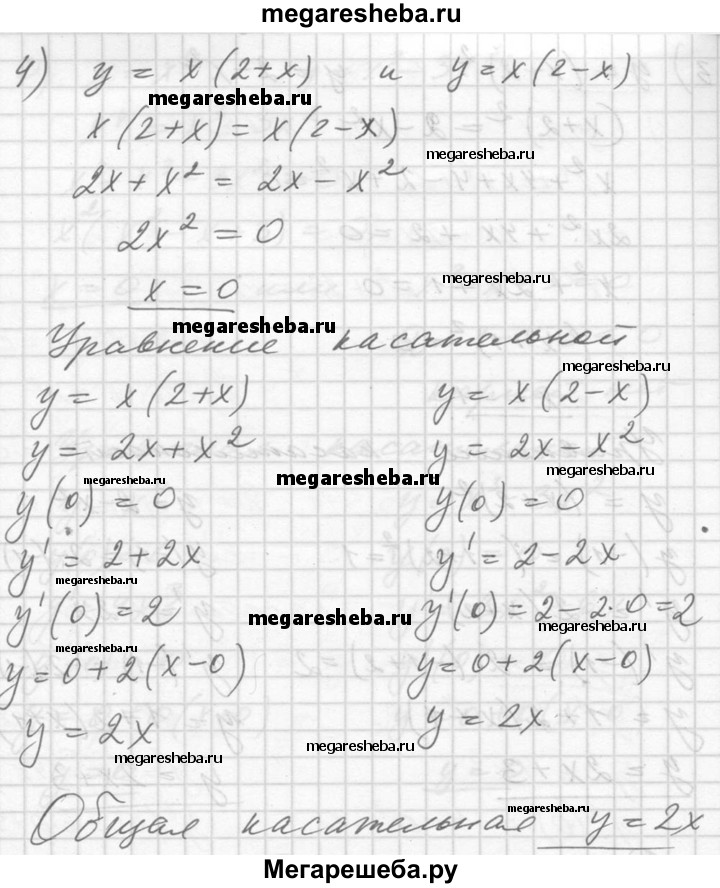 megaresheba.ru
4) y = x(2+x) и y=x(2-x)
megaresheba.ru
x(2+x)=x(2-x)
megaresheba.ru
2x+x² = 2x-x²
2x² = 0
megaresheba.ru
x = 0
megaresheba.ru
Уравнение касательной
megaresheba.ru
y = x(2+x) y = x(2-x)
y = 2x+x² y = 2x-x²
megaresheba.ru megaresheba.ru megaresheba.ru
y(0) = 0 y(0) = 0
y' = 2+2x y' = 2-2x
megaresheba.ru
y'(0) = 2 y'(0) = 2-2·0=2
megaresheba.ru megaresheba.ru
y=0+2(x-0) y=0+2(x-0)
y = 2x y = 2x
megaresheba.ru megaresheba.ru
megaresheba.ru
Общая касательная y=2x
Мегарешеба.ру